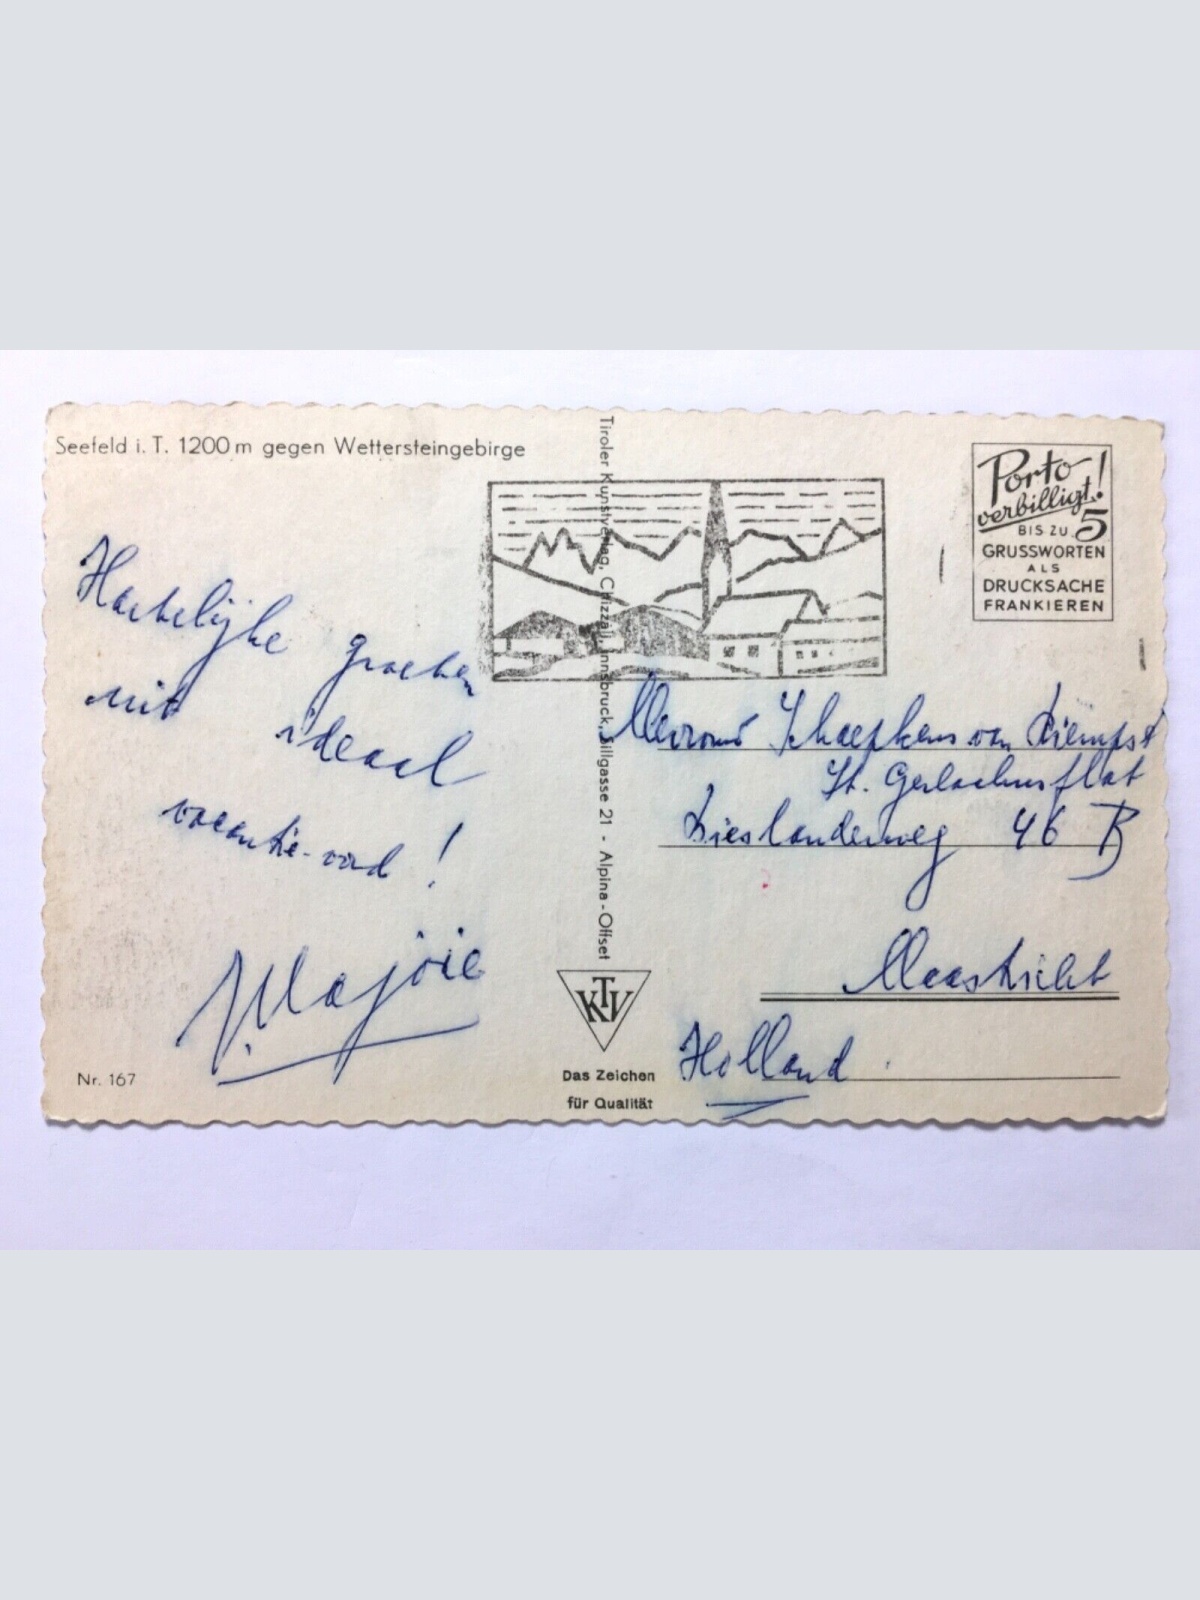 Seefeld i. T. 1200 m gegen Wettersteingebirge
Hartelijke groeten
uit ideaal
vacantie-oord !
Marjoie
Nr. 167
Tiroler Kunstverlag, Chizzali, Innsbruck, Sillgasse 21 - Alpina-Offset
KTV
Das Zeichen
für Qualität
Porto
verbilligt!
BIS ZU 5
GRUSSWORTEN
ALS
DRUCKSACHE
FRANKIEREN
Mevrouw Schaepkens van Riempst
St. Gerlachusflat
46 B
Maastricht
Holland